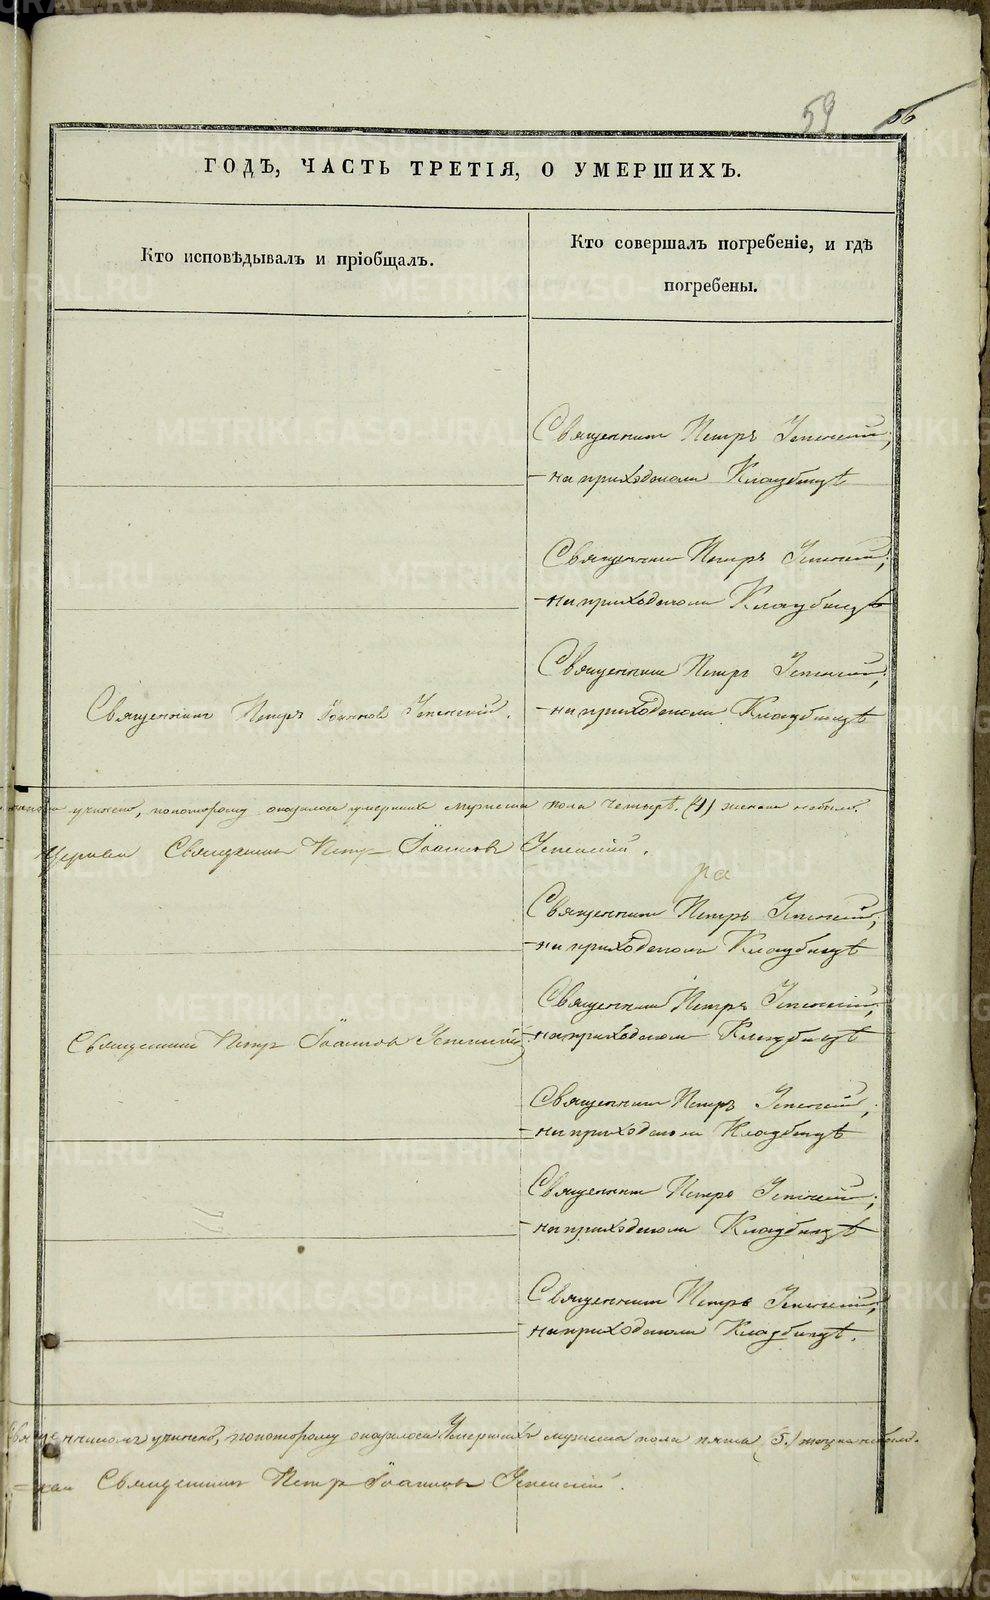 59
56
ГОДЪ, ЧАСТЬ ТРЕТІЯ, О УМЕРШИХЪ.
Кто исповѣдывалъ и пріобщалъ.
Кто совершалъ погребеніе, и гдѣ
погребены.
Священникъ Петръ Успенскій,
на приходскомъ Кладбищѣ
Священникъ Петръ Успенскій,
на приходскомъ Кладбищѣ
Священникъ Петръ Успенскій,
на приходскомъ Кладбищѣ
Священникъ Петръ Іоанновъ Успенскій.
учинено, по которому оказалось умершихъ мужеска пола четыре. (4) женска небыло.
Церкви Священникъ Петръ Іоанновъ Успенскій.
ра
Священникъ Петръ Успенскій,
на приходскомъ Кладбищѣ
Священникъ Петръ Успенскій,
на приходскомъ Кладбищѣ
Священникъ Петръ Іоанновъ Успенскій
Священникъ Петръ Успенскій,
на приходскомъ Кладбищѣ
Священникъ Петръ Успенскій,
на приходскомъ Кладбищѣ
Священникъ Петръ Успенскій,
на приходскомъ Кладбищѣ.
Священникомъ учинено, по которому оказалось Умершихъ мужеска пола пять (5.) небыло.
Священникъ Петръ Іоанновъ Успенскій.
METRIKI.GASO-URAL.RU